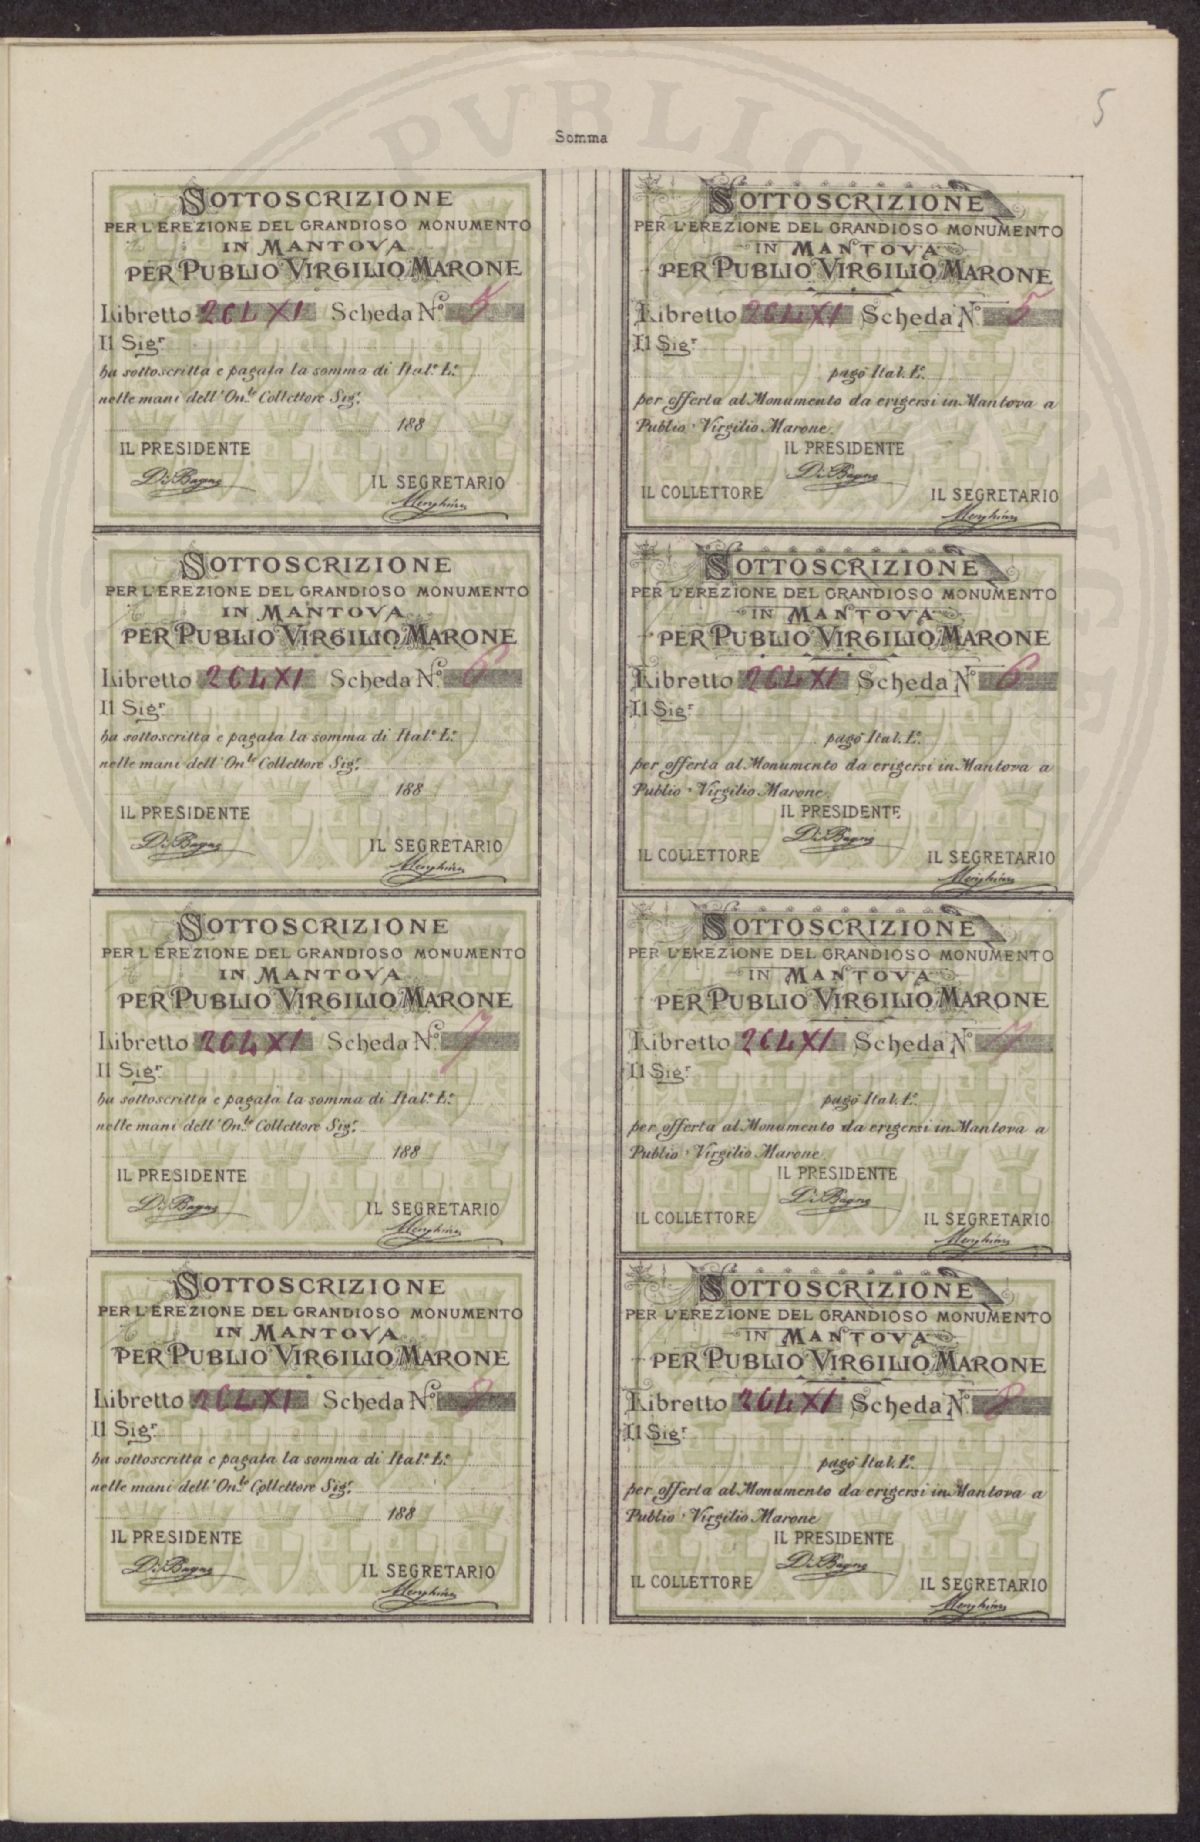 5
Somma
SOTTOSCRIZIONE
PER L'EREZIONE DEL GRANDIOSO MONUMENTO
IN MANTOVA
PER PUBLIO VIRGILIO MARONE
Libretto 264 XI Scheda N.º 5
Il Sig.r
ha sottoscritta e pagata la somma di Ital.e L.e
nelle mani dell'On.le Collettore Sig.r
188
IL PRESIDENTE
Di Bagno
IL SEGRETARIO
Menghini
SOTTOSCRIZIONE
PER L'EREZIONE DEL GRANDIOSO MONUMENTO
IN MANTOVA
PER PUBLIO VIRGILIO MARONE
Libretto 264 XI Scheda N.º 5
Il Sig.r
pagò Ital. L.e
per offerta al Monumento da erigersi in Mantova a
Publio Virgilio Marone.
IL PRESIDENTE
Di Bagno
IL COLLETTORE IL SEGRETARIO
Menghini
SOTTOSCRIZIONE
PER L'EREZIONE DEL GRANDIOSO MONUMENTO
IN MANTOVA
PER PUBLIO VIRGILIO MARONE
Libretto 264 XI Scheda N.º 6
Il Sig.r
ha sottoscritta e pagata la somma di Ital.e L.e
nelle mani dell'On.le Collettore Sig.r
188
IL PRESIDENTE
Di Bagno
IL SEGRETARIO
Menghini
SOTTOSCRIZIONE
PER L'EREZIONE DEL GRANDIOSO MONUMENTO
IN MANTOVA
PER PUBLIO VIRGILIO MARONE
Libretto 264 XI Scheda N.º 6
Il Sig.r
pagò Ital. L.e
per offerta al Monumento da erigersi in Mantova a
Publio Virgilio Marone.
IL PRESIDENTE
Di Bagno
IL COLLETTORE IL SEGRETARIO
Menghini
SOTTOSCRIZIONE
PER L'EREZIONE DEL GRANDIOSO MONUMENTO
IN MANTOVA
PER PUBLIO VIRGILIO MARONE
Libretto 264 XI Scheda N.º 7
Il Sig.r
ha sottoscritta e pagata la somma di Ital.e L.e
nelle mani dell'On.le Collettore Sig.r
188
IL PRESIDENTE
Di Bagno
IL SEGRETARIO
Menghini
SOTTOSCRIZIONE
PER L'EREZIONE DEL GRANDIOSO MONUMENTO
IN MANTOVA
PER PUBLIO VIRGILIO MARONE
Libretto 264 XI Scheda N.º 7
Il Sig.r
pagò Ital. L.e
per offerta al Monumento da erigersi in Mantova a
Publio Virgilio Marone.
IL PRESIDENTE
Di Bagno
IL COLLETTORE IL SEGRETARIO
Menghini
SOTTOSCRIZIONE
PER L'EREZIONE DEL GRANDIOSO MONUMENTO
IN MANTOVA
PER PUBLIO VIRGILIO MARONE
Libretto 264 XI Scheda N.º 8
Il Sig.r
ha sottoscritta e pagata la somma di Ital.e L.e
nelle mani dell'On.le Collettore Sig.r
188
IL PRESIDENTE
Di Bagno
IL SEGRETARIO
Menghini
SOTTOSCRIZIONE
PER L'EREZIONE DEL GRANDIOSO MONUMENTO
IN MANTOVA
PER PUBLIO VIRGILIO MARONE
Libretto 264 XI Scheda N.º 8
Il Sig.r
pagò Ital. L.e
per offerta al Monumento da erigersi in Mantova a
Publio Virgilio Marone
IL PRESIDENTE
Di Bagno
IL COLLETTORE IL SEGRETARIO
Menghini